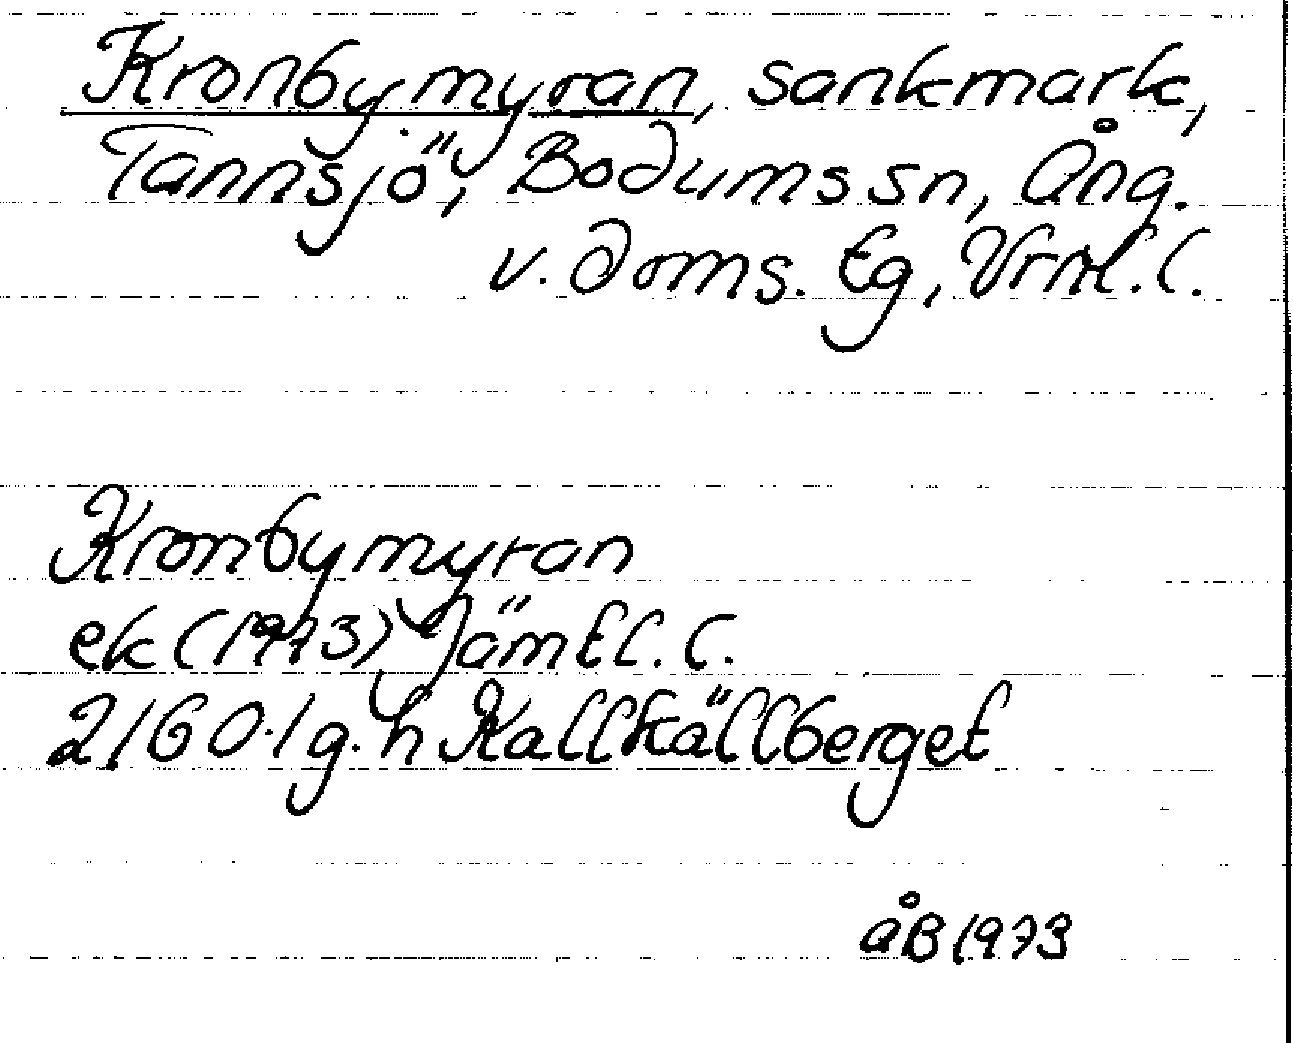 Kronbymyran, sankmark,
Tannsjö, Bodums sn, Ång.
v. doms. Eg, Vrnl. l.
Kronbymyran
ek (1973) Jämtl. l.
2160.1 g.h Kallkällberget
åB 1973